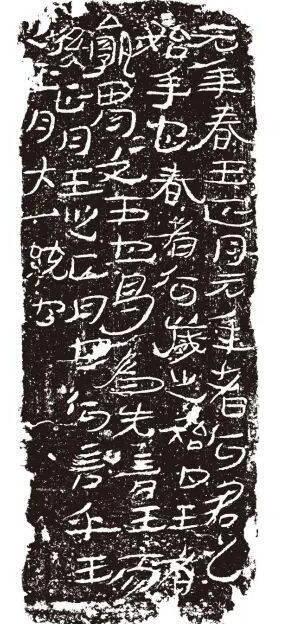 元年春王正月元年者何君之
始年也春者何歲之始也王者
孰胃〻文王也曷為先言王而
後正月王之正月也何言乎王
正月大一統也